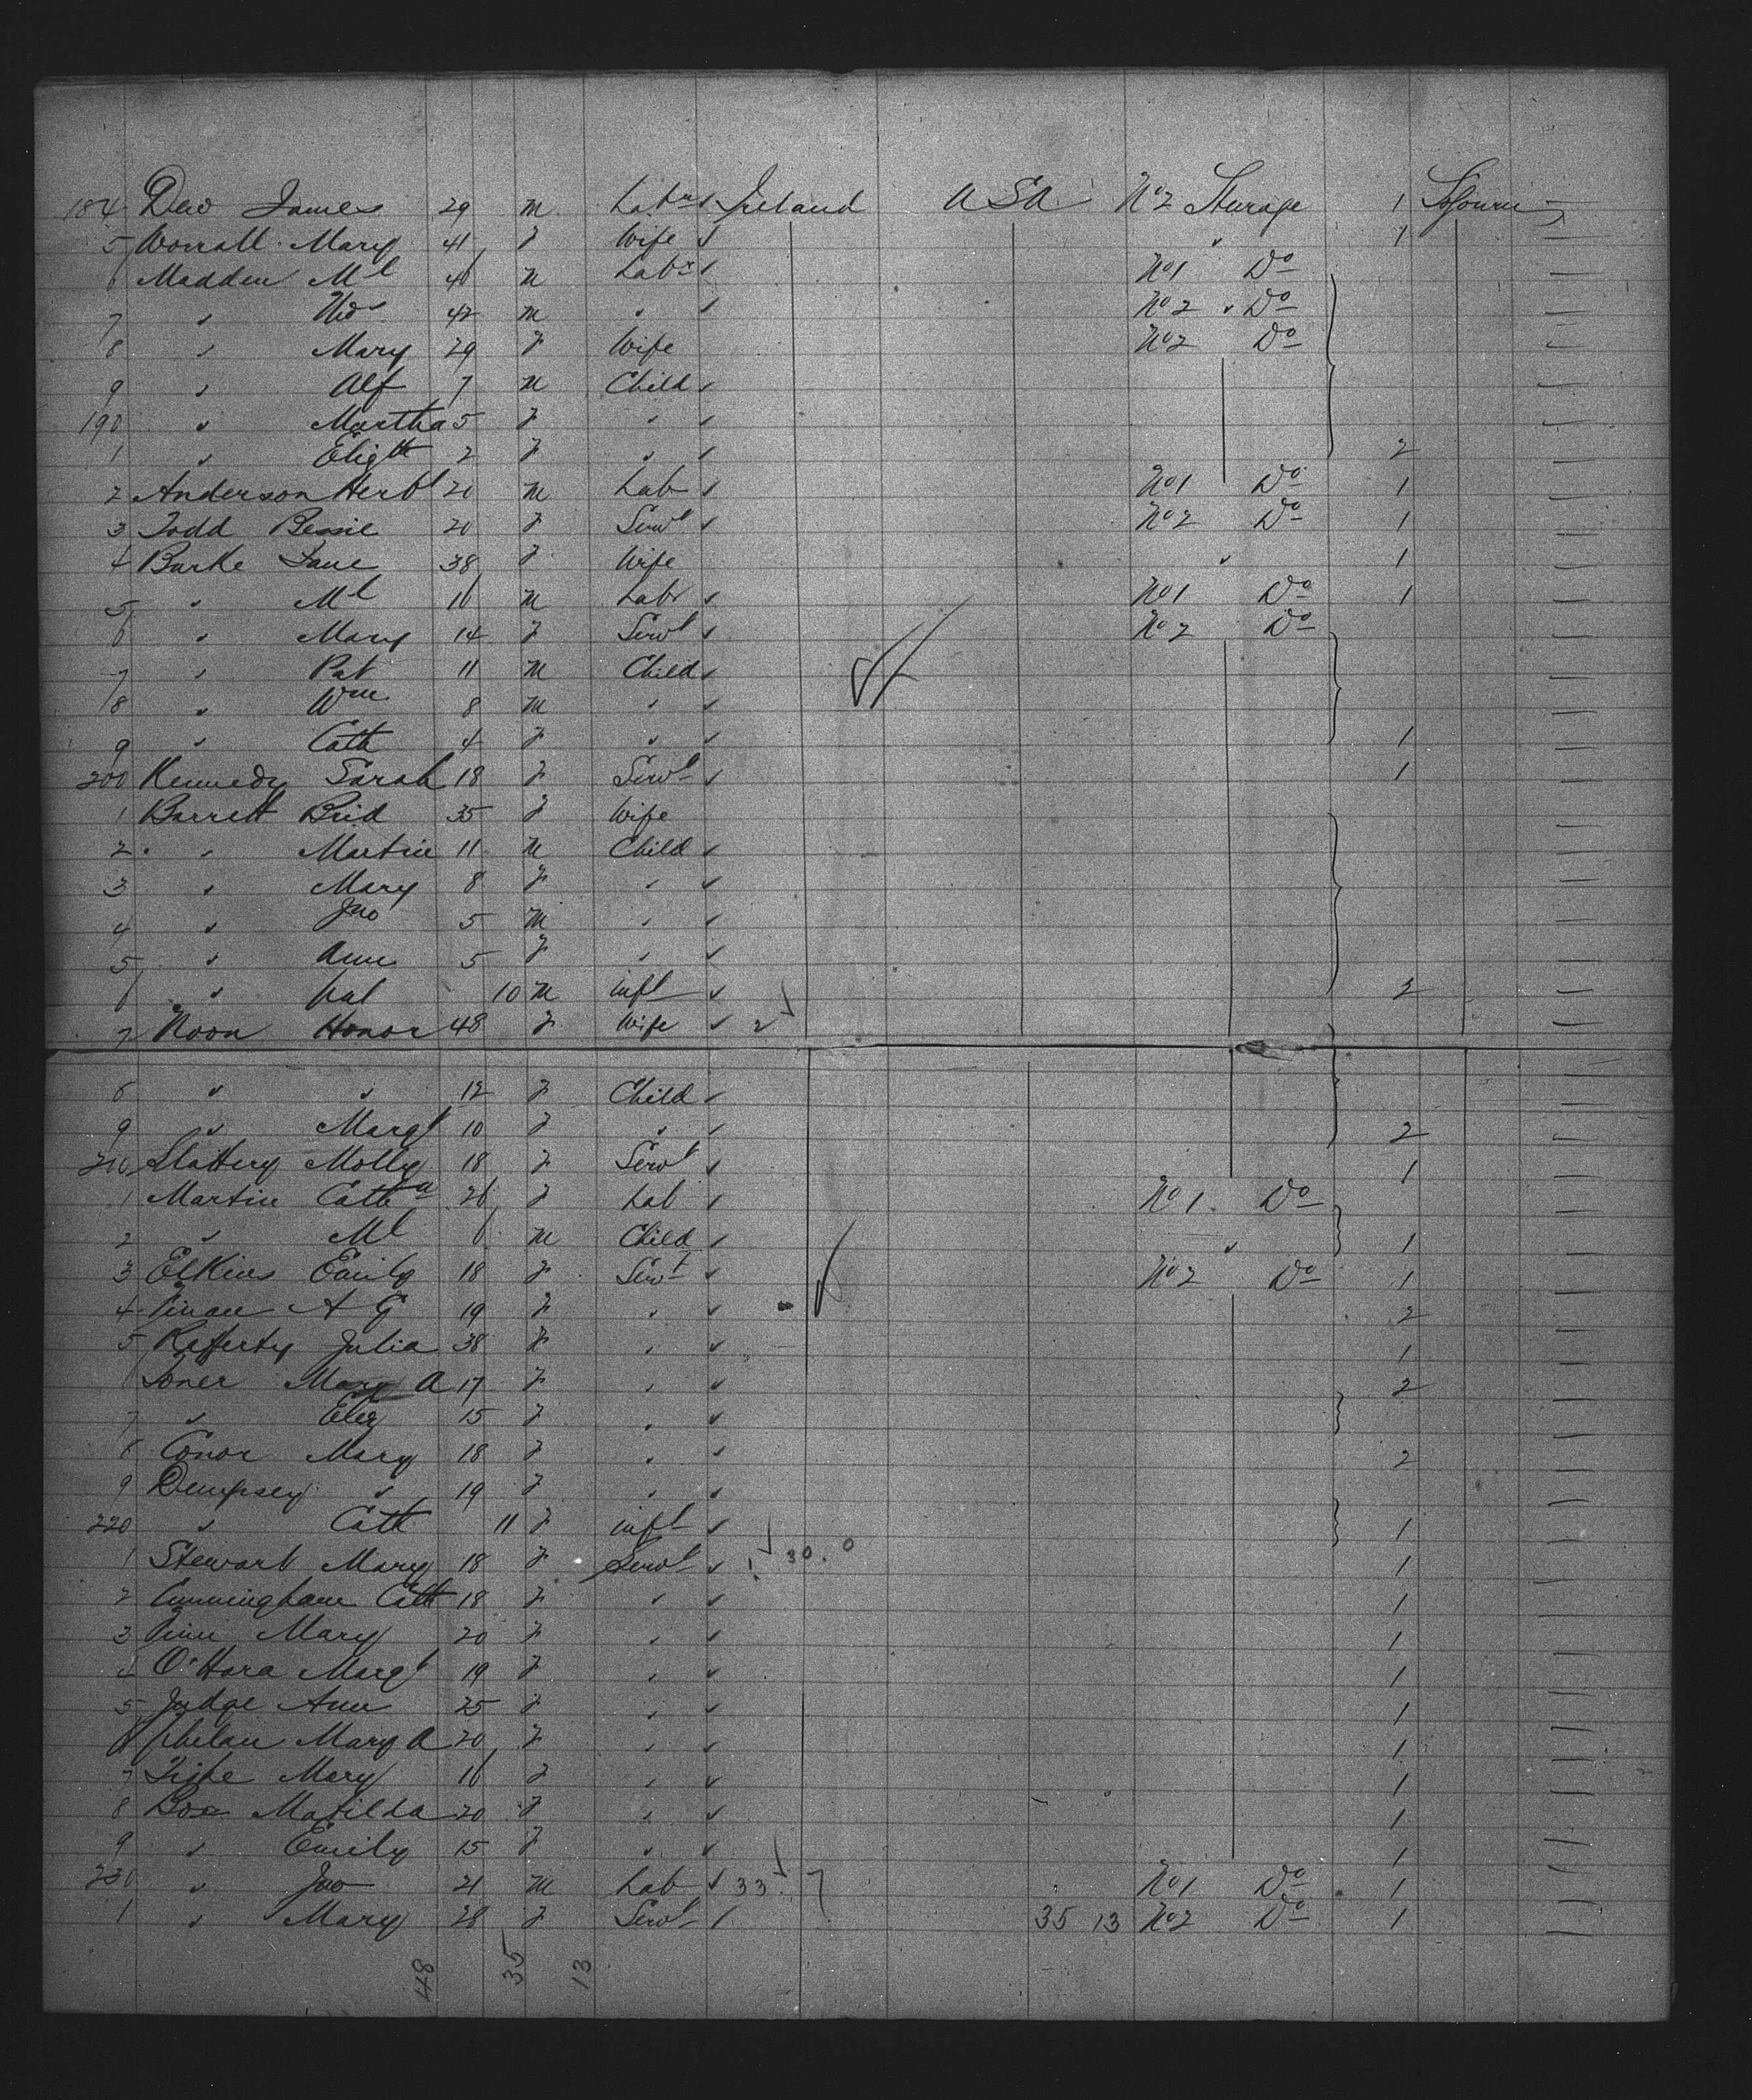 184 James 29 m Labr Ireland USA No 2 Steurage 1 Sojourn
5 Worrall Mary 41 f Wife " 1
6 Madden Ml 40 m Labr No 1 Do
7 " 42 m " No 2 Do
8 " Mary 29 f Wife No 2 Do
9 " Alf 7 m Child
190 " Martha 5 f "
1 " Elizth 2 f " 2
2 Anderson Herbt 20 m Lab No 1 Do 1
3 Todd Bessie 20 f Servt No 2 Do 1
4 Burke Jane 38 f Wife " 1
5 " Ml 16 m Labr No 1 Do 1
6 " Mary 14 f Servt No 2 Do
7 " Pat 11 m Child
8 " Wm 8 m "
9 " Cath 4 f " 1
200 Kennedy Sarah 18 f Servt 1
1 Barrett Brid 35 f Wife
2 " Martin 11 m Child
3 " Mary 8 f "
4 " Jno 5 m "
5 " Ann 5 f "
6 " Pat 10 m inft 2
7 Noon Honor 48 f Wife 2
8 " " 12 f Child
9 " Margt 10 f " 2
210 Slattery Molly 18 f Servt 1
1 Martin Catha 26 f Lab No 1 Do
2 " Ml 6 m Child " 1
3 Elkins Emily 18 f Servt No 2 Do 1
4 A G 19 f " 2
5 Rafferty Julia 38 f " 1
6 Toner Mary A 17 f " 2
7 " Eliz 15 f "
8 Conor Mary 18 f " 2
9 Dempsey " 19 f "
220 " Cath 11 f inft 1
1 Stewart Mary 18 f Servt 1 30.0 1
2 Cunningham Cath 18 f " 1
3 Finn Mary 20 f " 1
4 O'Hara Margt 19 f " 1
5 Judge Ann 25 f " 1
6 Phelan Mary A 20 f " 1
7 Tighe Mary 16 f " 1
8 Matilda 20 f " 1
9 " Emily 15 f " 1
230 " Jno 21 m Lab 33 No 1 Do 1
1 " Mary 28 f Servt 35 13 No 2 Do 1
48 35 13